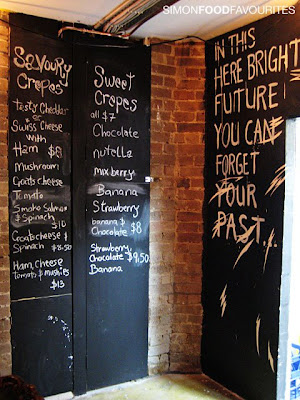 SIMONFOODFAVOURITES
Savoury
Crepes
Tasty Cheddar
or
Swiss Cheese
with
Ham $8
Mushroom
Goats cheese
Tomato
Smoke Salmon
& Spinach
$10
Goatcheese &
Spinach $8.50
Ham, Cheese
Tomato & mushies
$13
Sweet
Crepes
all $7
Chocolate
nutella
mix berry
Banana
Strawberry
banana &
Chocolate $8
Strawberry,
Chocolate $9,50
Banana
IN THIS
HERE BRIGHT
FUTURE
YOU CAN
FORGET
YOUR
PAST...